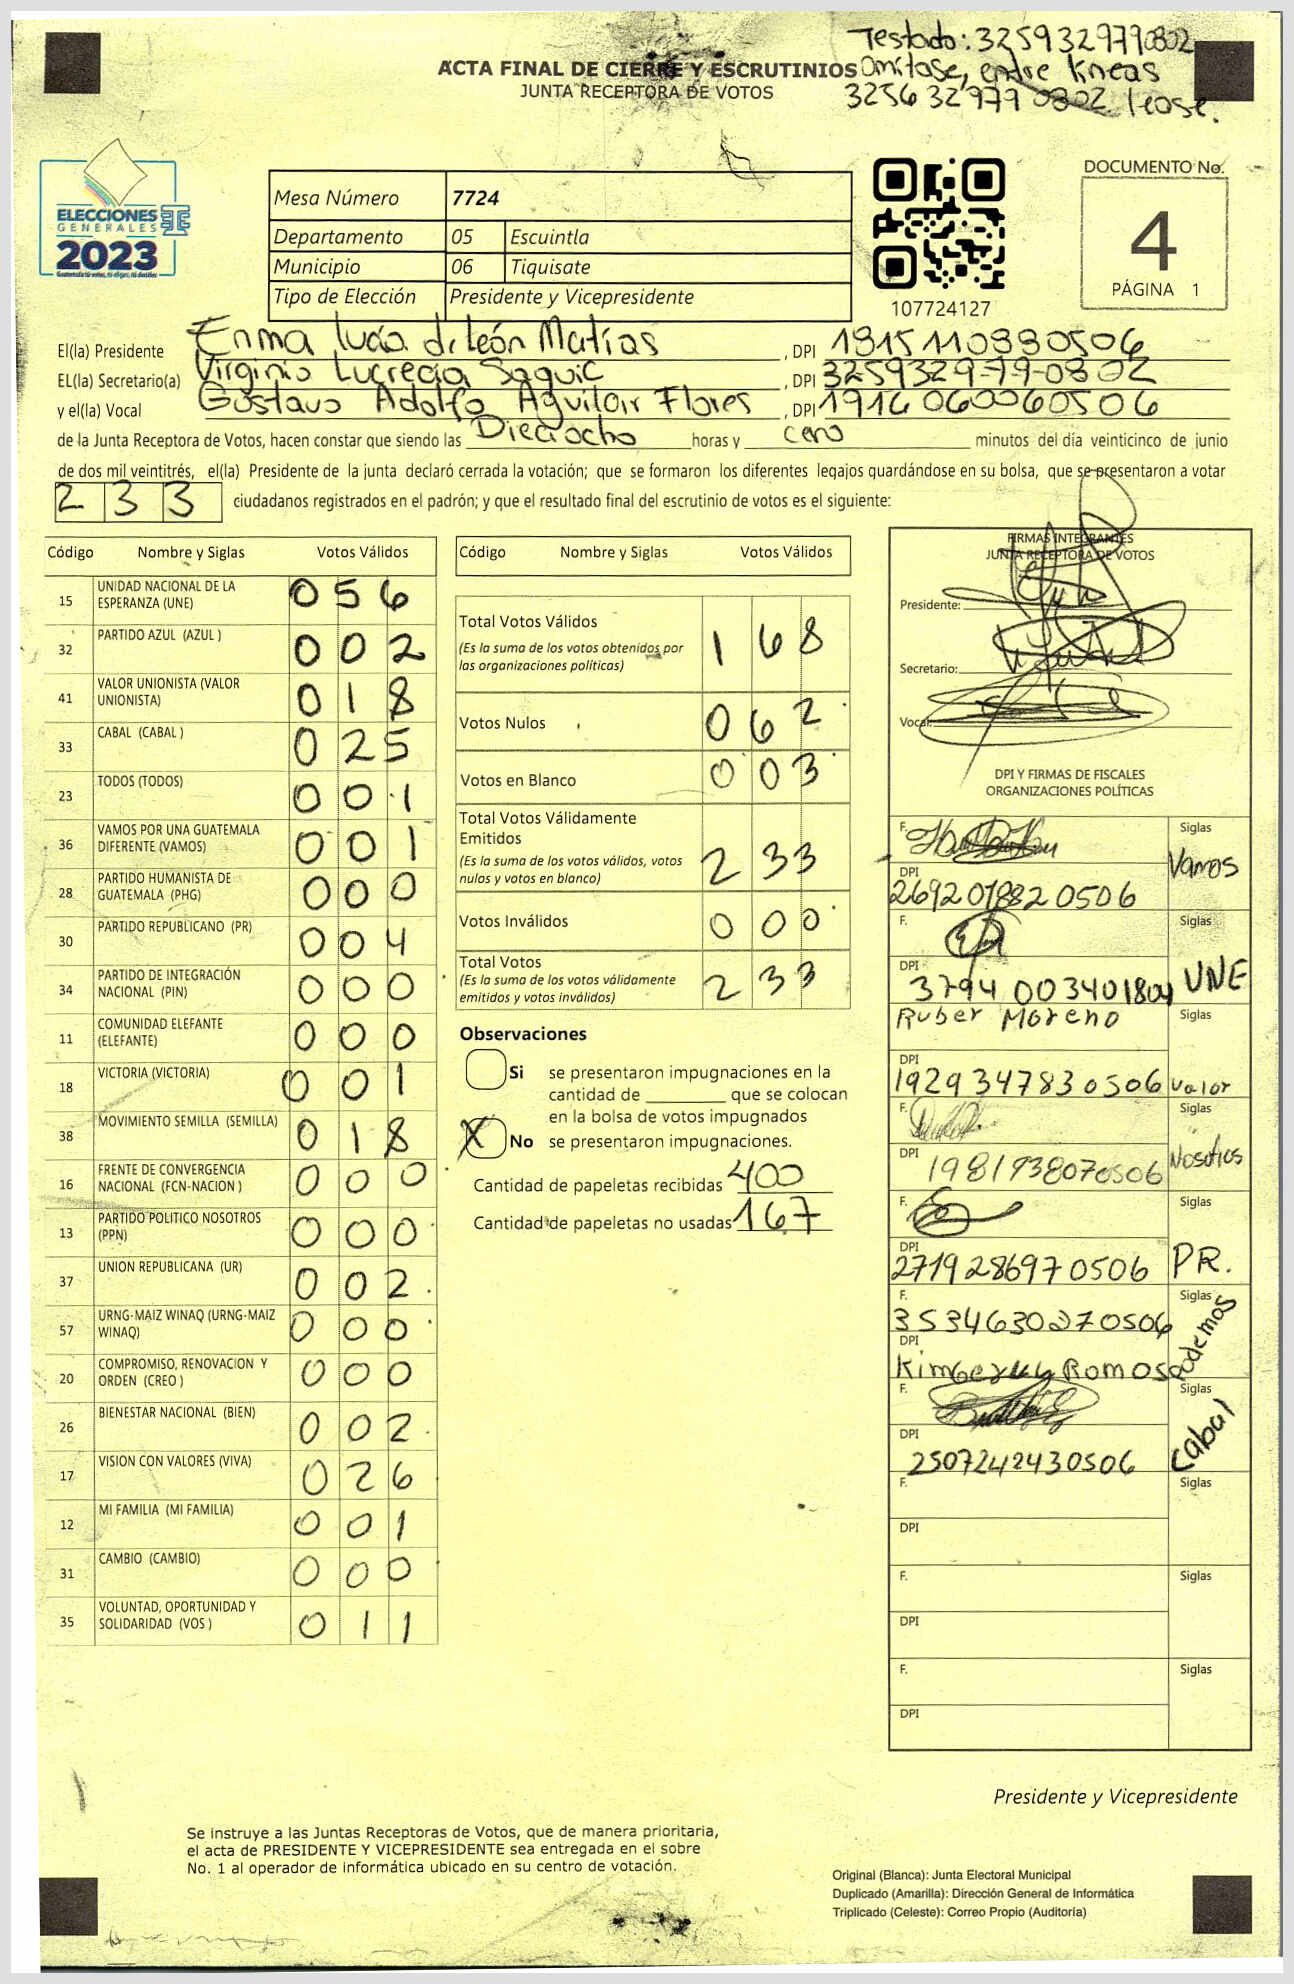 Testado: 3259329790802
Omitase, entre lineas
3256329790802 lease.
ACTA FINAL DE CIERRE Y ESCRUTINIOS
JUNTA RECEPTORA DE VOTOS
ELECCIONES
GENERALES
2023
Mesa Número 7724
Departamento 05 Escuintla
Municipio 06 Tiquisate
Tipo de Elección Presidente y Vicepresidente
107724127
DOCUMENTO No.
4
PÁGINA 1
El(la) Presidente Enma Lucía de León Matías, DPI 1915110330506
EL(la) Secretario(a) Virginia Lucrecia Saquic, DPI 3259329790802
y el(la) Vocal Gustavo Adolfo Aguilar Flores, DPI 1916060060506
de la Junta Receptora de Votos, hacen constar que siendo las Dieciocho horas y cero minutos del día veinticinco de junio
de dos mil veintitrés, el(la) Presidente de la junta declaró cerrada la votación; que se formaron los diferentes legajos guardándose en su bolsa, que se presentaron a votar
233 ciudadanos registrados en el padrón; y que el resultado final del escrutinio de votos es el siguiente:
Código Nombre y Siglas Votos Válidos
15 UNIDAD NACIONAL DE LA ESPERANZA (UNE) 056
32 PARTIDO AZUL (AZUL ) 002
41 VALOR UNIONISTA (VALOR UNIONISTA) 018
33 CABAL (CABAL ) 025
23 TODOS (TODOS) 001
36 VAMOS POR UNA GUATEMALA DIFERENTE (VAMOS) 001
28 PARTIDO HUMANISTA DE GUATEMALA (PHG) 000
30 PARTIDO REPUBLICANO (PR) 004
34 PARTIDO DE INTEGRACIÓN NACIONAL (PIN) 000
11 COMUNIDAD ELEFANTE (ELEFANTE) 000
18 VICTORIA (VICTORIA) 001
38 MOVIMIENTO SEMILLA (SEMILLA) 018
16 FRENTE DE CONVERGENCIA NACIONAL (FCN-NACION ) 000
13 PARTIDO POLITICO NOSOTROS (PPN) 000
37 UNION REPUBLICANA (UR) 002
57 URNG-MAIZ WINAQ (URNG-MAIZ WINAQ) 000
20 COMPROMISO, RENOVACION Y ORDEN (CREO ) 000
26 BIENESTAR NACIONAL (BIEN) 002
17 VISION CON VALORES (VIVA) 026
12 MI FAMILIA (MI FAMILIA) 001
31 CAMBIO (CAMBIO) 000
35 VOLUNTAD, OPORTUNIDAD Y SOLIDARIDAD (VOS ) 011
Código Nombre y Siglas Votos Válidos
Total Votos Válidos 168
(Es la suma de los votos obtenidos por
las organizaciones políticas)
Votos Nulos 062
Votos en Blanco 003
Total Votos Válidamente
Emitidos 233
(Es la suma de los votos válidos, votos
nulos y votos en blanco)
Votos Inválidos 000
Total Votos 233
(Es la suma de los votos válidamente
emitidos y votos inválidos)
Observaciones
Si se presentaron impugnaciones en la
cantidad de ________ que se colocan
en la bolsa de votos impugnados
X No se presentaron impugnaciones.
Cantidad de papeletas recibidas 400
Cantidad de papeletas no usadas 167
FIRMAS INTEGRANTES
JUNTA RECEPTORA DE VOTOS
Presidente:
Secretario:
Vocal:
DPI Y FIRMAS DE FISCALES
ORGANIZACIONES POLÍTICAS
F. Siglas Vamos
DPI 2692018820506
F. Siglas UNE
DPI 3794003401804
Ruber Moreno Siglas Valor
DPI 1929347830506
F. Siglas Nosotros
DPI 1981738070506
F. Siglas PR.
DPI 2719286970506
F. 3534630270506 Siglas Podemos
DPI Kimberly Ramos
F. Siglas Cabal
DPI 2507242430506
F. Siglas
DPI
F. Siglas
DPI
F. Siglas
DPI
Presidente y Vicepresidente
Se instruye a las Juntas Receptoras de Votos, que de manera prioritaria,
el acta de PRESIDENTE Y VICEPRESIDENTE sea entregada en el sobre
No. 1 al operador de informática ubicado en su centro de votación.
Original (Blanca): Junta Electoral Municipal
Duplicado (Amarilla): Dirección General de Informática
Triplicado (Celeste): Correo Propio (Auditoría)